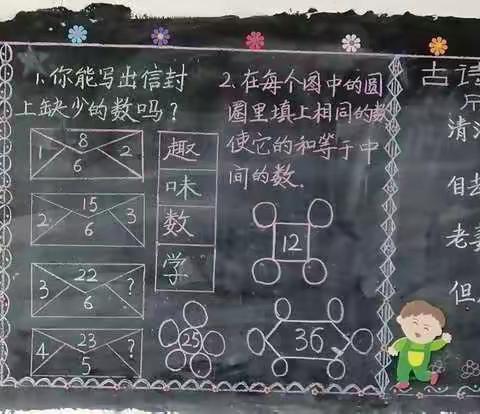 1.你能写出信封
上缺少的数吗？
1 8 2
6
2 15 3
6
3 22 ?
6
4 23 ?
5
趣
味
数
学
2.在每个图中的圆
圈里填上相同的数
使它的和等于中
间的数.
12
25
36
古诗
清
老
但